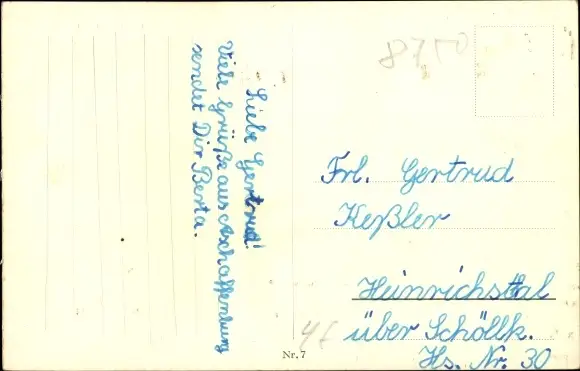 Liebe Gertrud!
Viele Grüße aus Aschaffenburg
sendet Dir Berta.
8750
Frl. Gertrud
Keßler
Heinrichsthal
über Schöllk.
Hs. Nr. 30
Nr. 7